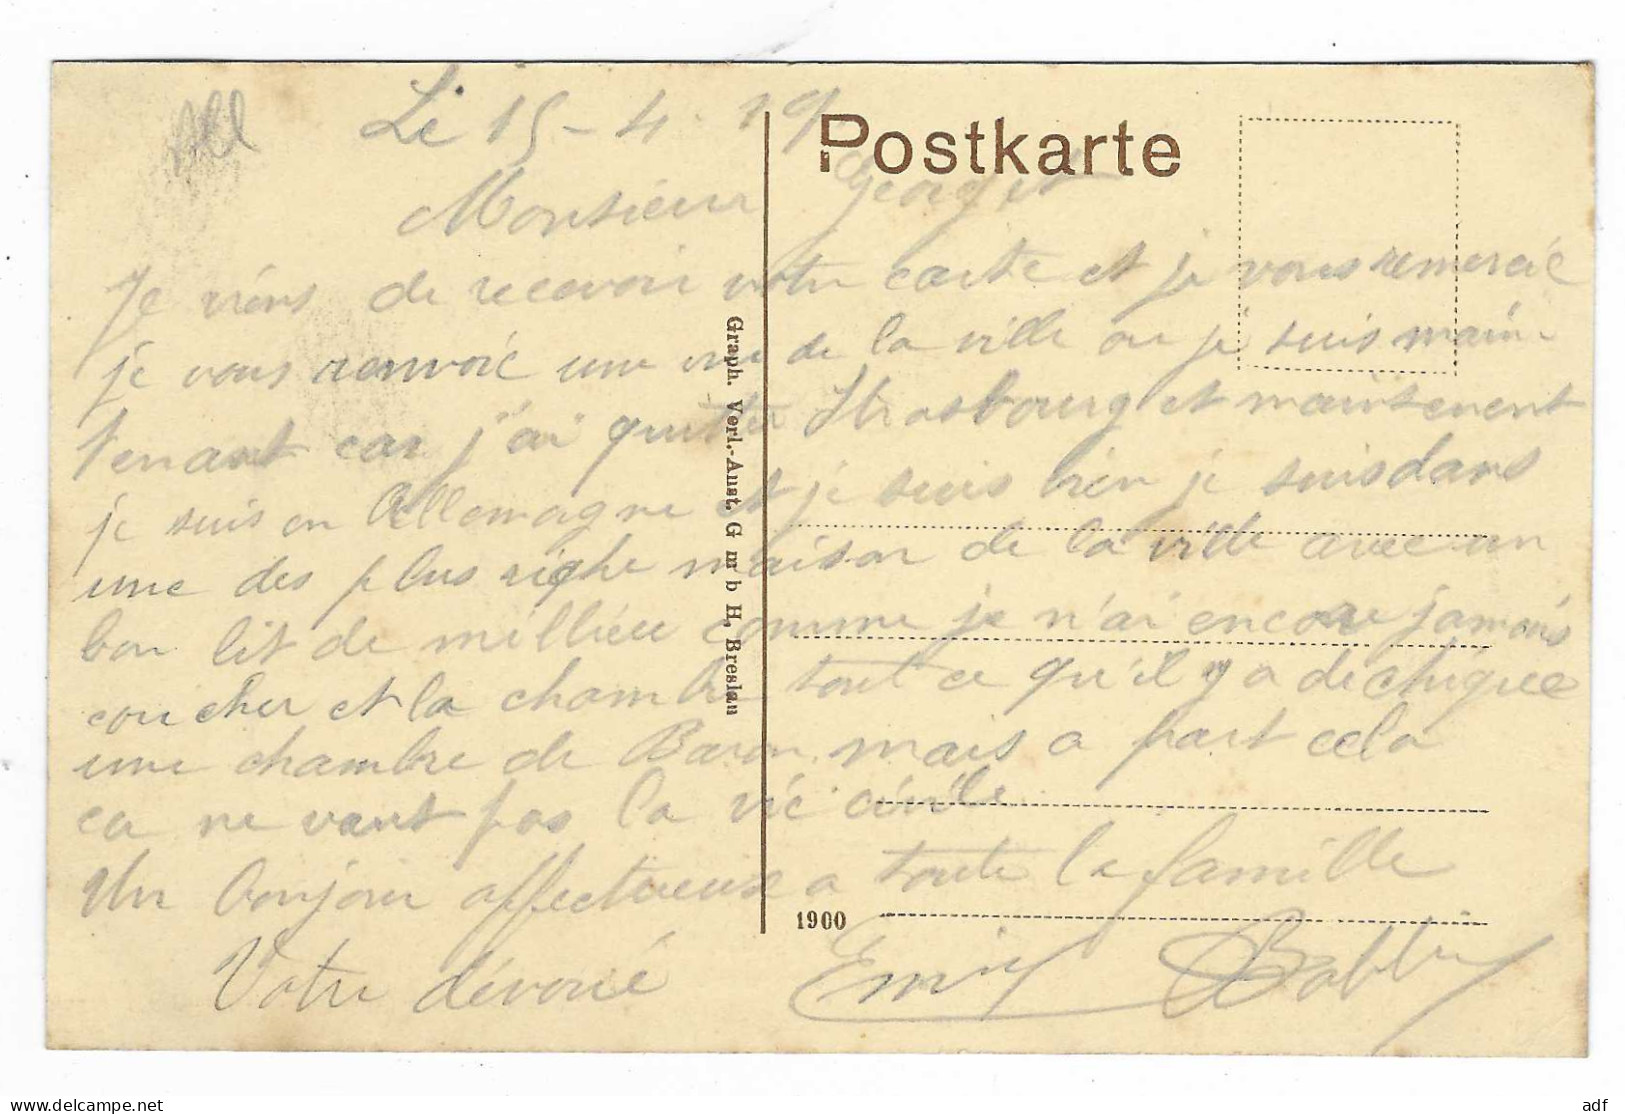 All
Le 15-4-19
Postkarte
Monsieur Georges
Je viens de recevoir votre carte et je vous remercie
je vous renvoie une vue de la ville ou je suis main-
tenant car j'ai quitter Strasbourg et maintenent
je suis en Allemagne et je suis bien je suis dans
une des plus righe maison de la ville avec un
bon lit de millieu comme je n'ai encore jamais
coucher et la chambre tout ce qu'il y a de chique
une chambre de Baron, mais a part cela
ca ne vaut pas la vie civile
Un bonjour affectueux a toute la famille
Votre dévoué
Graph. Verl.-Anst. G m b H, Breslau
1900
delcampe.net
adf